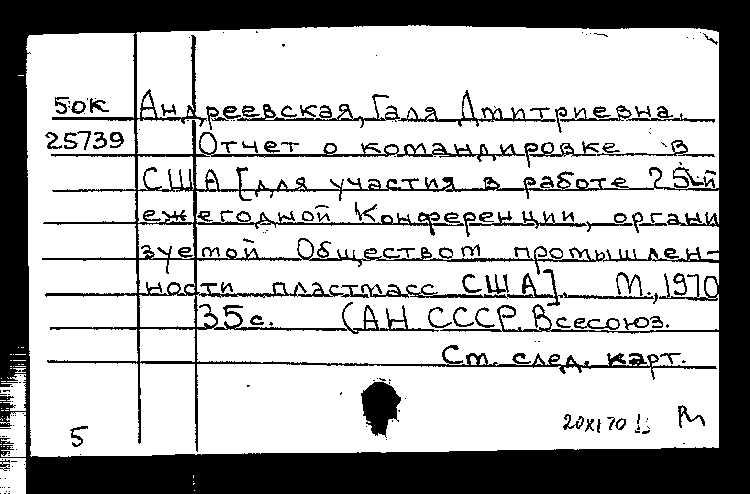 50к Андреевская, Галя Дмитриевна.
25739 Отчет о командировке в
США [для участия в работе 25-й
ежегодной Конференции, органи
зуемой Обществом промышлен-
ности пластмасс США]. М., 1970
35 с. (АН СССР. Всесоюз.
См. след. карт.
5 20 XI 70